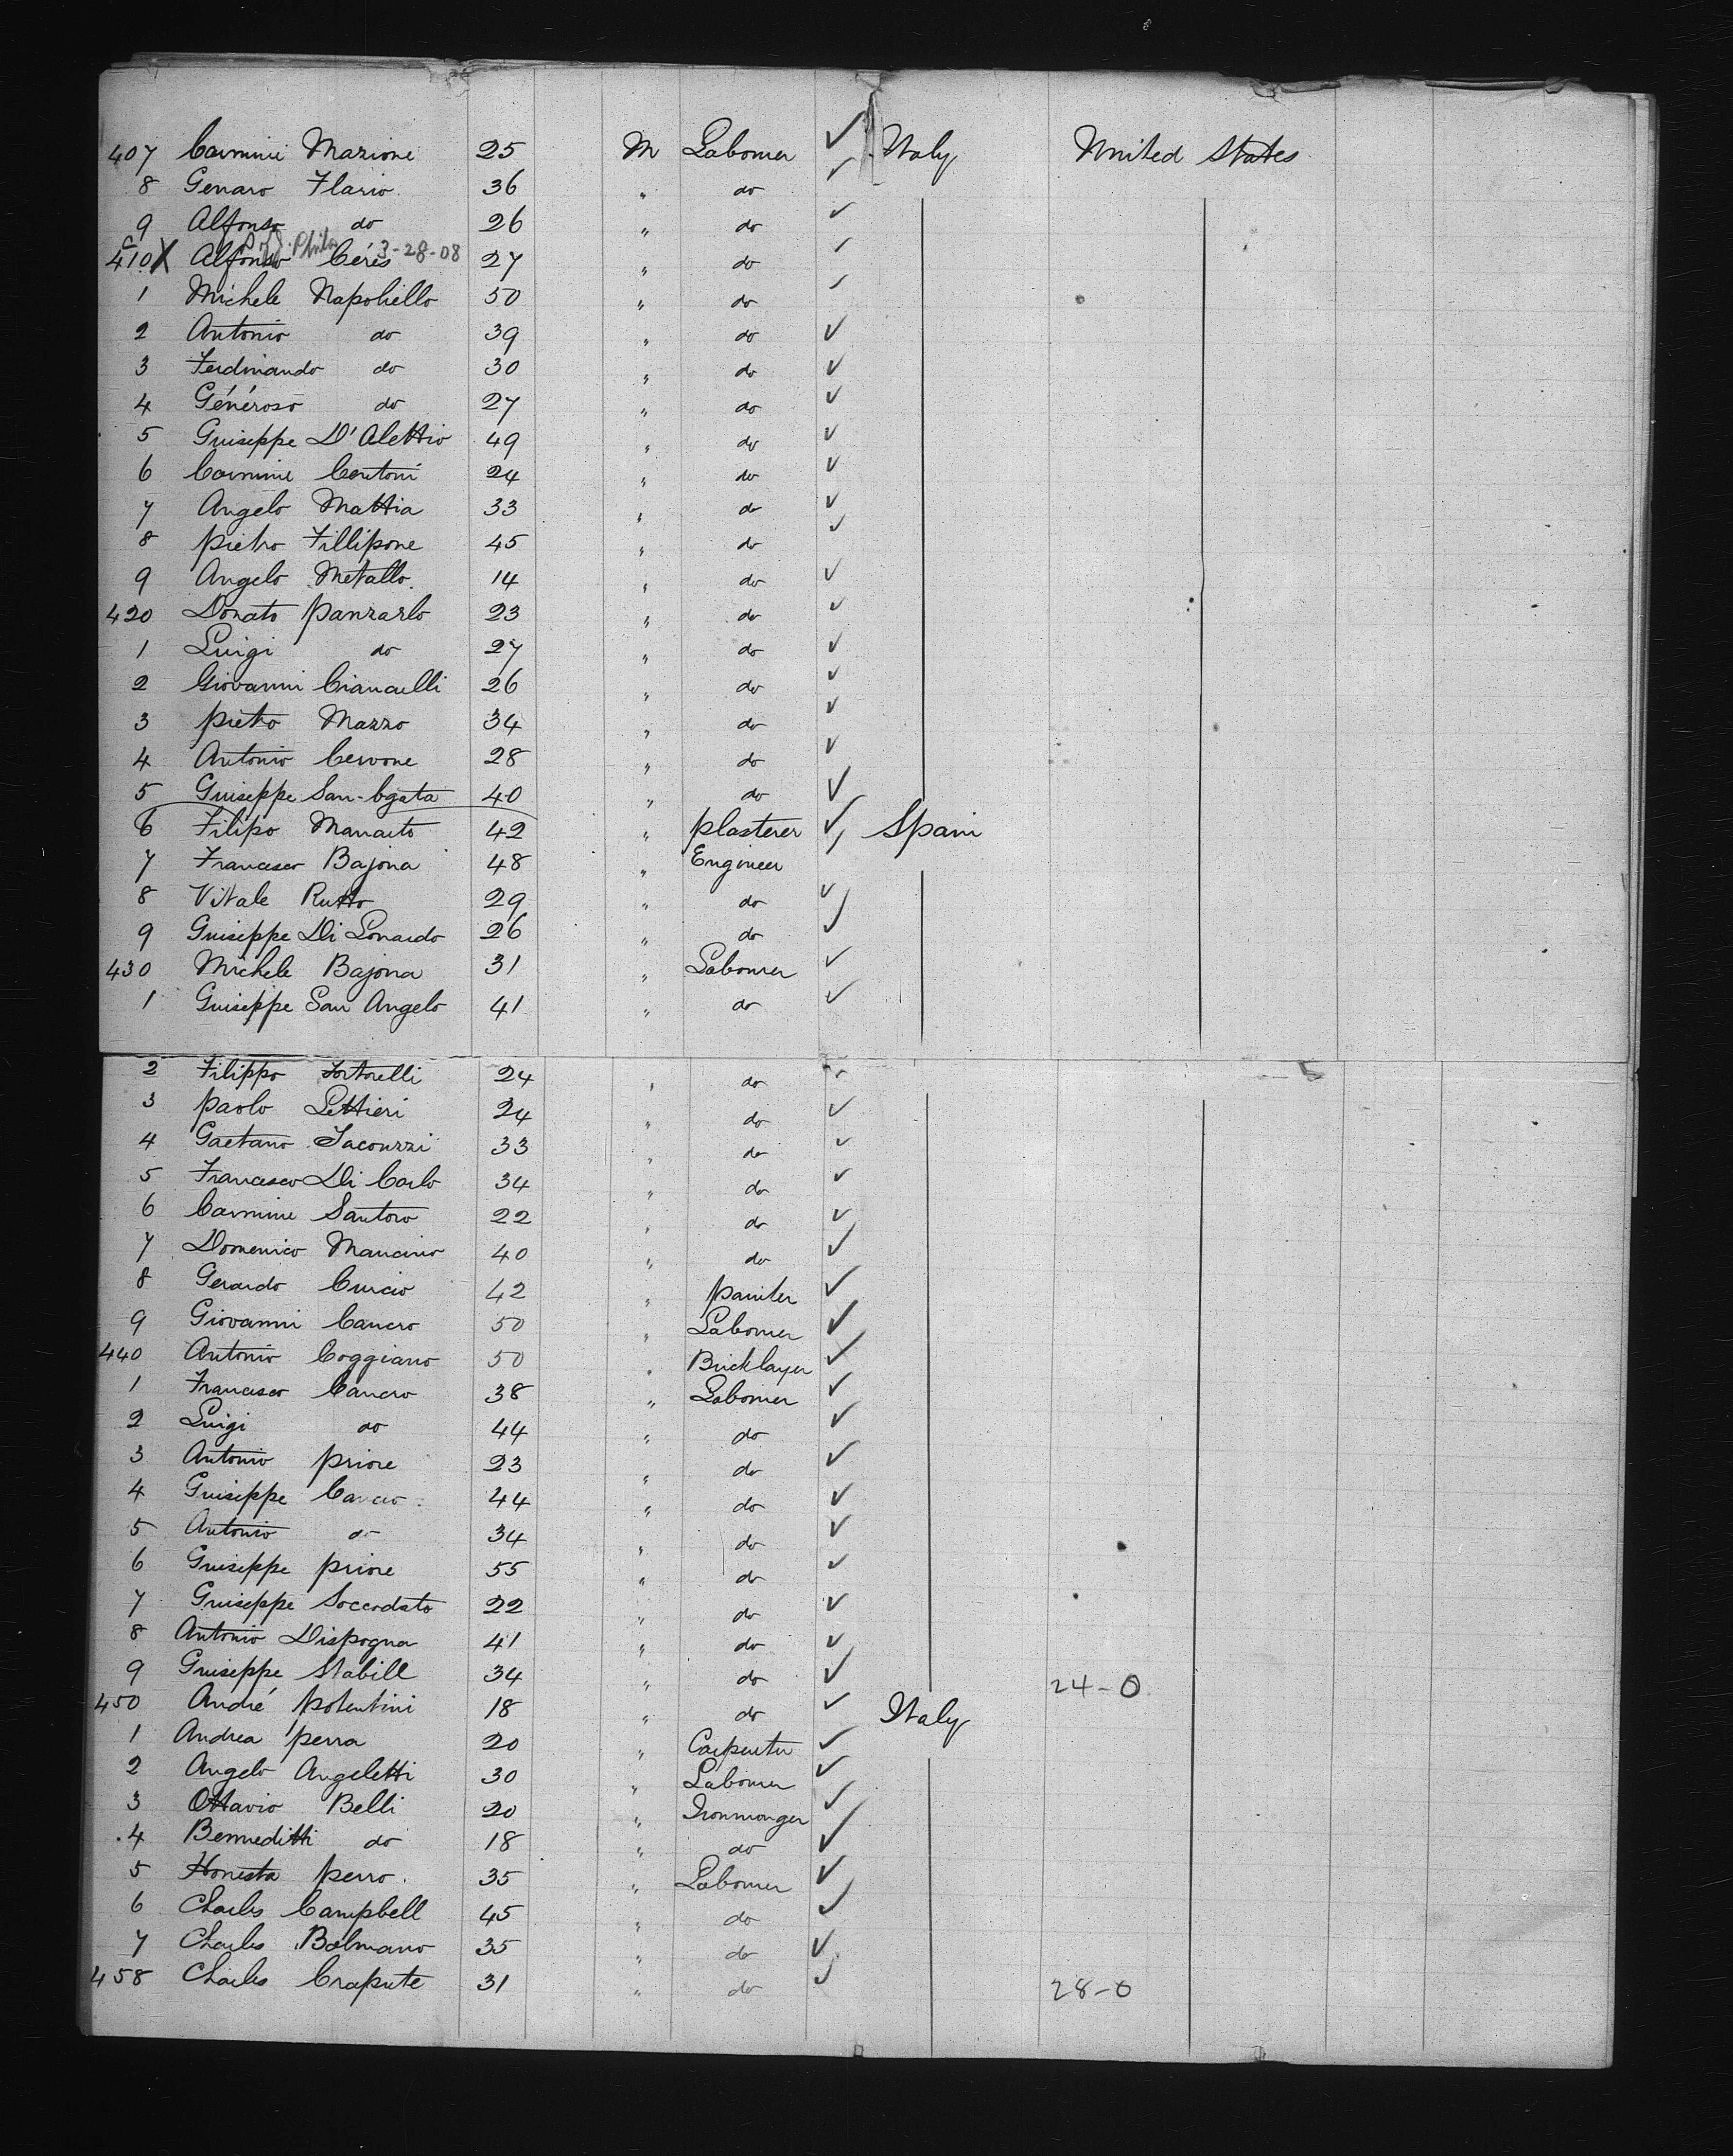 407 Carmine Mazione 25 M Labourer ✓ Italy United States
8 Genaro Ilario 36 " do ✓
9 Alfonso do 26 " do ✓
Phila 3-28-08
410 X Alfonso Cérés 27 " do ✓
1 Michele Napoliello 50 " do ✓
2 Antonio do 39 " do ✓
3 Ferdinando do 30 " do ✓
4 Généroso do 27 " do ✓
5 Guiseppe D'Alettio 49 " do ✓
6 Carmine Centoni 24 " do ✓
7 Angelo Mattia 33 " do ✓
8 Pietro Fillipone 45 " do ✓
9 Angelo Metallo 14 " do ✓
420 Donato Panzarlo 23 " do ✓
1 Luigi do 27 " do ✓
2 Giovanni Ciancielli 26 " do ✓
3 Pietro Mazzo 34 " do ✓
4 Antonio Cervone 28 " do ✓
5 Guiseppe San-Agata 40 " do ✓
6 Filipo Manaito 42 " Plasterer ✓ Spain
7 Francesco Bajona 48 " Engineer ✓
8 Vitale Rutto 29 " do ✓
9 Guiseppe Di Lonardo 26 " do ✓
430 Michele Bajona 31 " Labourer ✓
1 Guiseppe San Angelo 41 " do ✓
2 Filippo Tortorelli 24 " do ✓
3 Paolo Lettieri 24 " do ✓
4 Gaetano Iacouzzi 33 " do ✓
5 Francesco Di Carlo 34 " do ✓
6 Carmine Santoro 22 " do ✓
7 Domenico Mancino 40 " do ✓
8 Gerardo Curcio 42 " Painter ✓
9 Giovanni Cancro 50 " Labourer ✓
440 Antonio Coggiano 50 " Bricklayer ✓
1 Francesco Cancro 38 " Labourer ✓
2 Luigi do 44 " do ✓
3 Antonio Priore 23 " do ✓
4 Guiseppe 44 " do ✓
5 Antonio do 34 " do ✓
6 Guiseppe Priore 55 " do ✓
7 Guiseppe Soccodato 22 " do ✓
8 Antonio Dispogna 41 " do ✓
9 Guiseppe Stabill 34 " do ✓ 24-0
450 André Potentini 18 " do ✓ Italy
1 Andrea Perra 20 " Carpenter ✓
2 Angelo Angeletti 30 " Labourer ✓
3 Ottavio Belli 20 " Ironmonger ✓
4 Benneditti do 18 " do ✓
5 Honesta Perro 35 " Labourer ✓
6 Charles Campbell 45 " do ✓
7 Charles Bolmano 35 " do ✓
458 Charles Crapute 31 " do ✓ 28-0